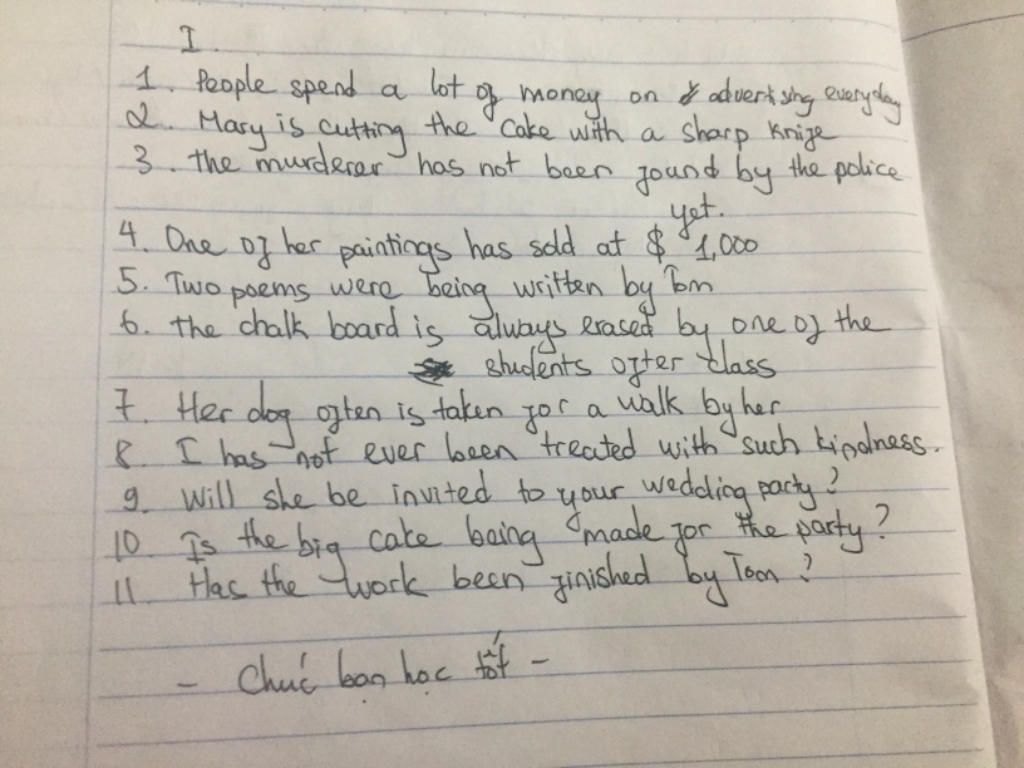 I.
1. People spend a lot of money on advertising everyday
2. Mary is cutting the cake with a sharp knife
3. the murderer has not been found by the police
yet.
4. One of her paintings has sold at $ 1,000
5. Two poems were being written by Tom
6. the chalk board is always erased by one of the
students after class
7. Her dog often is taken for a walk by her
8. I has not ever been treated with such kindness.
9. Will she be invited to your wedding party?
10. Is the big cake being made for the party?
11. Has the work been finished by Toan?
- Chúc bạn học tốt -